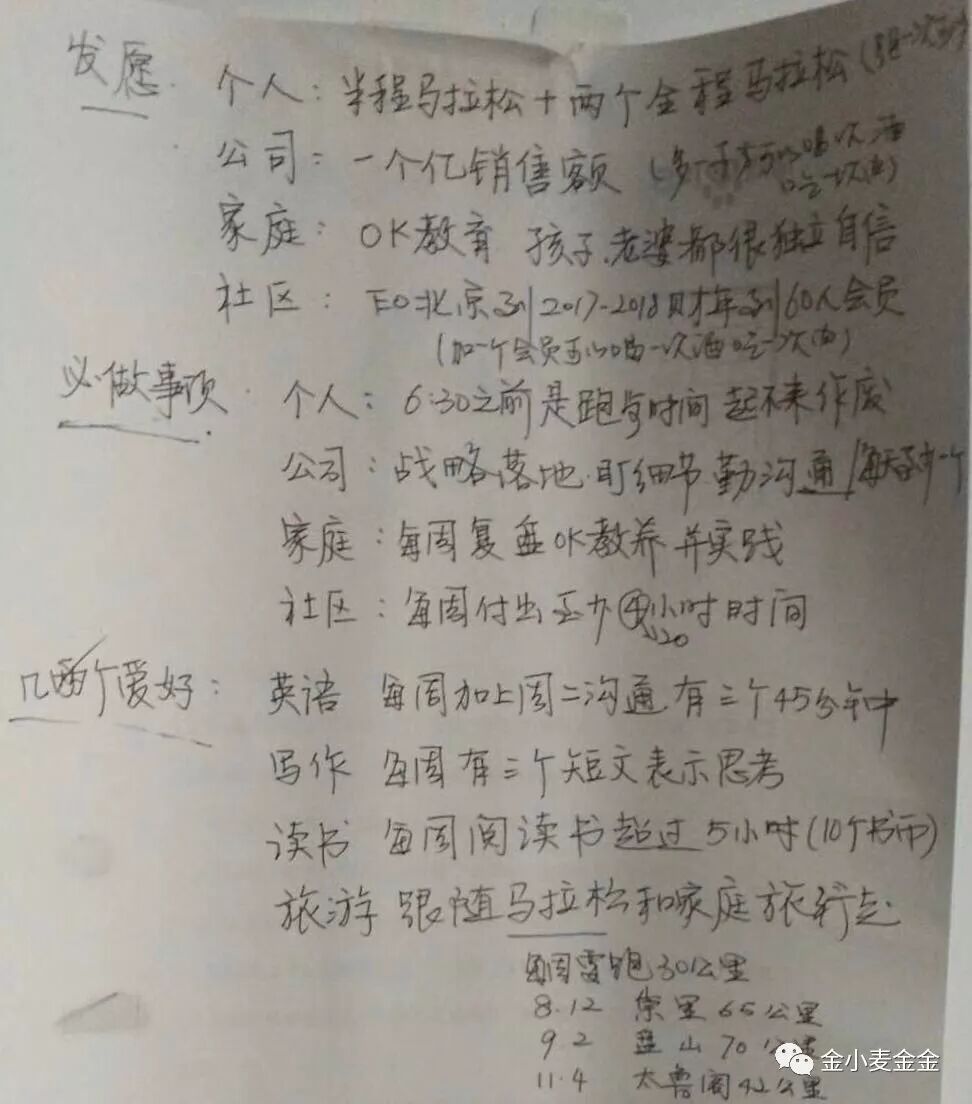 发愿 个人：半程马拉松+两个全程马拉松（
公司：一个亿销售额（多一千万可以喝一次酒
吃一次肉）
家庭：OK教育 孩子、老婆都很独立自信
社区：EO北京到2017-2018财年到60人会员
（加一个会员可以喝一次酒吃一次肉）
必做事项 个人：6:30之前是跑步时间 起不来作废
公司：战略落地、盯细节 勤沟通
家庭：每周复盘OK教养并实践
社区：每周付出至少④小时时间
20
几个爱好：英语 每周加上周二沟通有三个45分钟
写作 每周有三个短文表示思考
读书 每周阅读书超过5小时（10个书币）
旅游 跟随马拉松和家庭旅行走
每周需跑30公里
8.12 崇里65公里
9.2 盘山70公里
11.4 太鲁阁42公里
金小麦金金